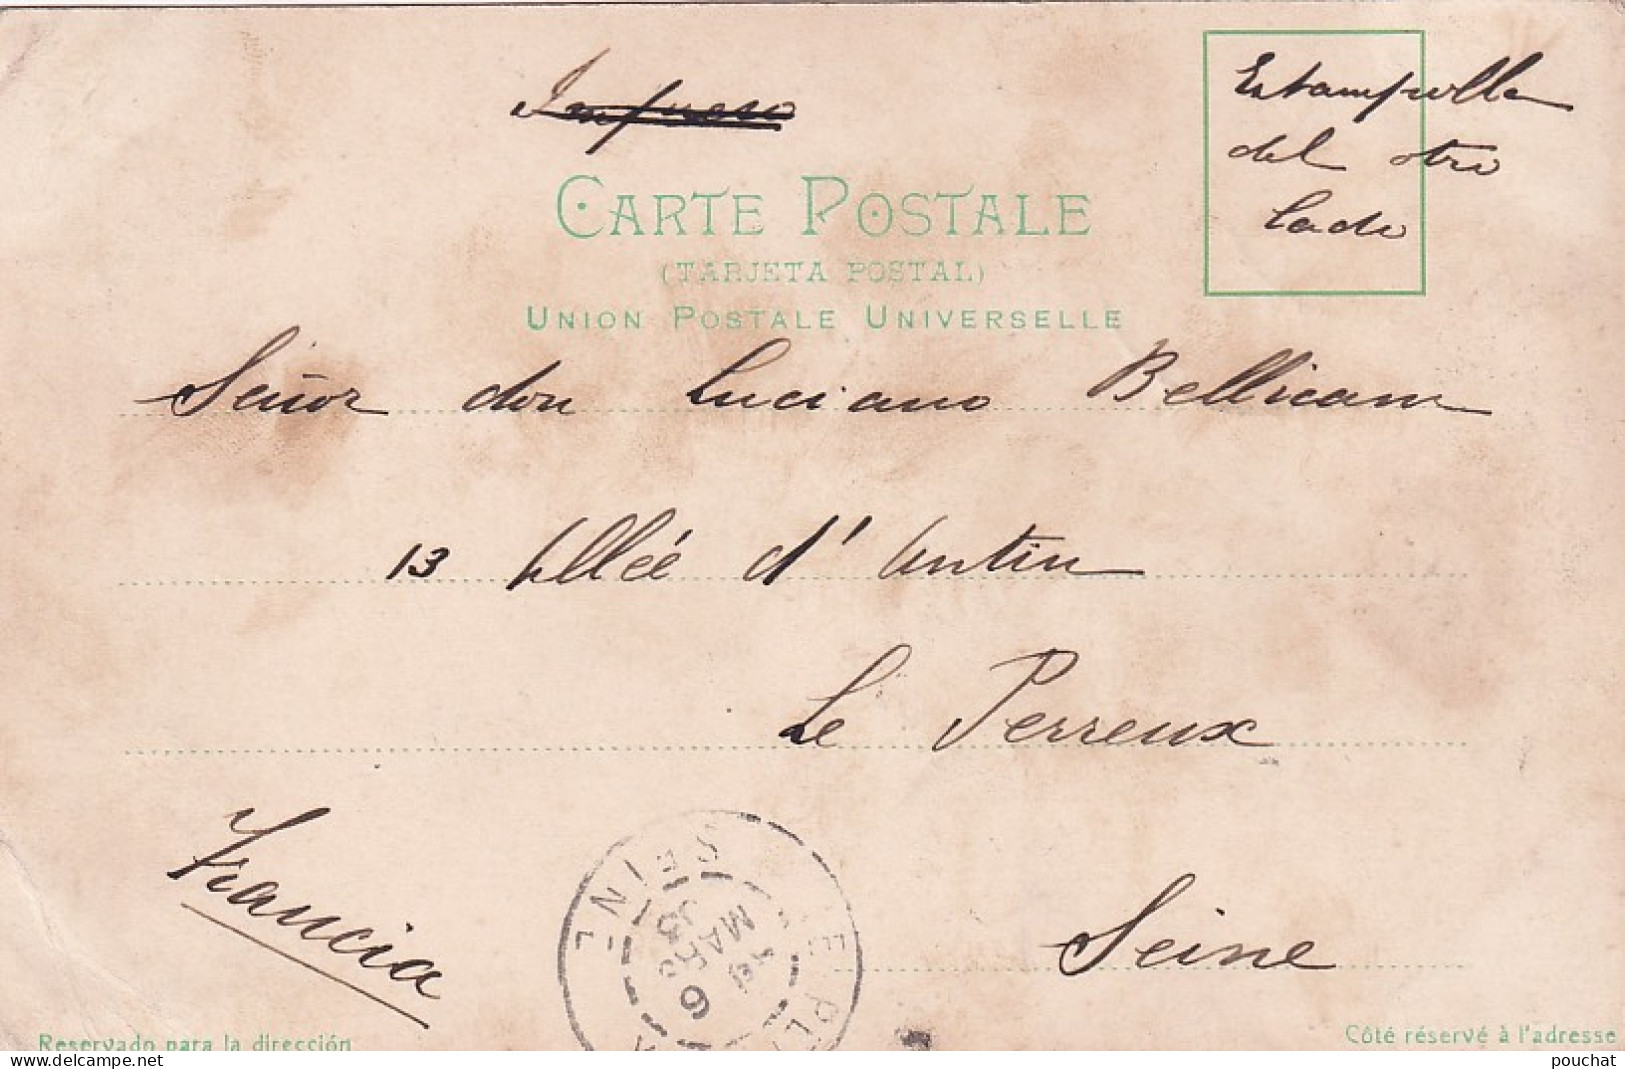 Impreso
Estampilla
del otro
lado
CARTE POSTALE
(TARJETA POSTAL)
UNION POSTALE UNIVERSELLE
Señor don Luciano Bellicam
13 Allée d'Antin
Le Perreux
Francia
Seine
SEINE
MARS
Reservado para la dirección
Côté réservé à l'adresse
pouchat